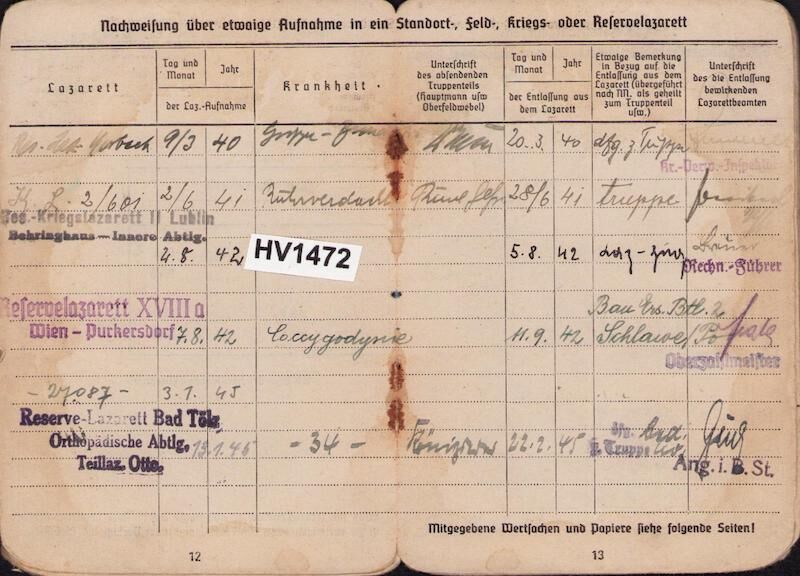 Nachweisung über etwaige Aufnahme in ein Standort-, Feld-, Kriegs- oder Reservelazarett
Lazarett
Tag und
Monat
Jahr
der Laz.-Aufnahme
Krankheit.
Unterschrift
des absendenden
Truppenteils
(Hauptmann usw.
Oberfeldwebel)
Tag und
Monat
Jahr
der Entlassung aus
dem Lazarett
Etwaige Bemerkung
in Bezug auf die
Entlassung aus dem
Lazarett (übergeführt
nach M. als geheilt
zum Truppenteil
usw.)
Unterschrift
des die Entlassung
bewirkenden
Lazarettbeamten
9/3 40
20.3. 40 dfg. z. Truppe
Kr.-Verw.-Inspektor
K. L. 2/601 2/6 41 Ruhrverdacht
28/6 41 Truppe
Res.-Kriegslazarett II Lublin
Behringhaus - Innere Abtlg.
4.8. 42
HV1472
5.8. 42
Rechn.-Führer
Reservelazarett XVIII a
Wien - Purkersdorf 7.8. 42 Coccygodynie
11.9. 42
Bau Ers. Btl. 2
Schlawe/Po
Oberzahlmeister
- 27087 - 3.1. 45
Reserve-Lazarett Bad Tölz
Orthopädische Abtlg. 13.1.45
Teillaz. Otto.
- 34 -
22.2. 45
z. Truppe
Ang. i. B. St.
Mitgegebene Wertsachen und Papiere siehe folgende Seiten!
12
13